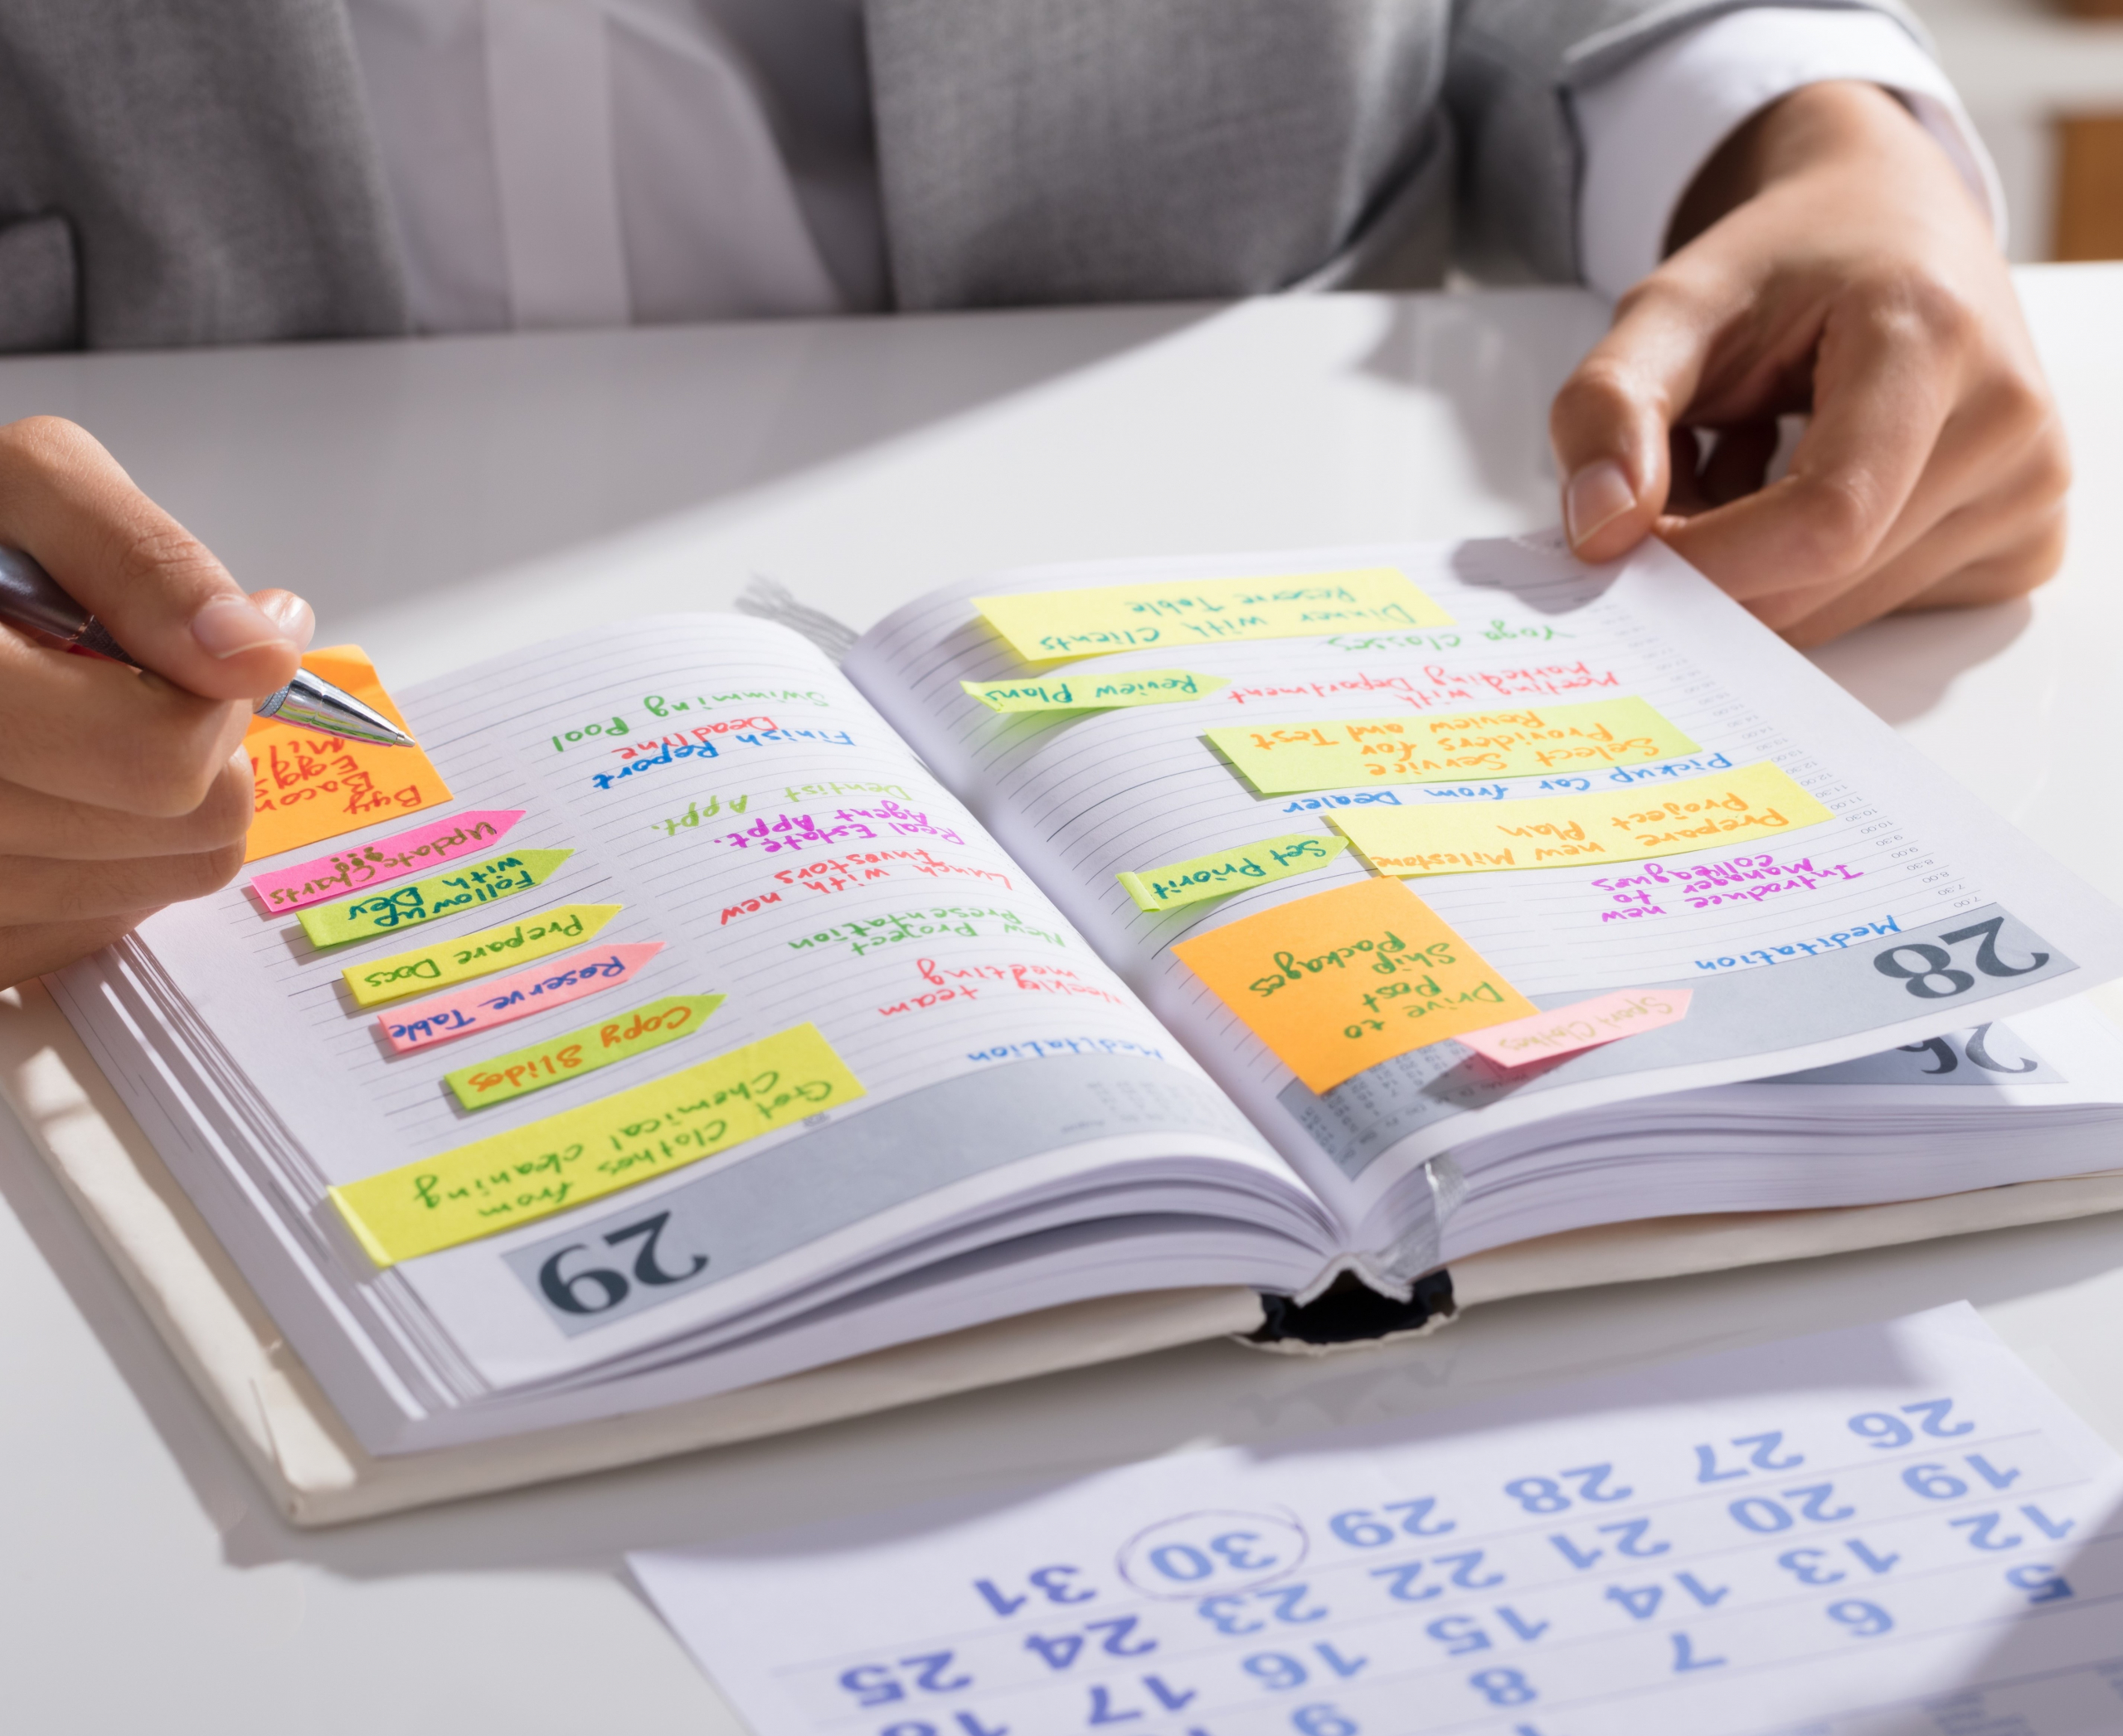 28
Meditation
Introduce new
Manager to
colleagues
Prepare new Milestone
Project Plan
Pickup Car from Dealer
Select Service
Providers for
Review and Test
Meeting with
Marketing Department
Yoga Classes
Dinner with Clients
Reserve Table
Sport Clothes
Drive to
Post
Ship
Packages
Set Priorit
Review Plans
26
29
Get Clothes from
Chemical cleaning
Copy Slides
Reserve Table
Prepare Docs
Follow up
with Dev
Update Charts
Buy
Bacon
Eggs
Meditation
Weekly team
meeting
New Project
Presentation
Lunch with new
Investors
Real Estate
Agent Appt.
Dentist Appt.
Finish Report
Deadline
Swimming Pool
5 6 7 8 9
12 13 14 15 16 17 18
19 20 21 22 23 24 25
26 27 28 29 30 31
7.00
7.30
8.00
8.30
9.30
10.00
10.30
11.00
11.30
12.00
12.30